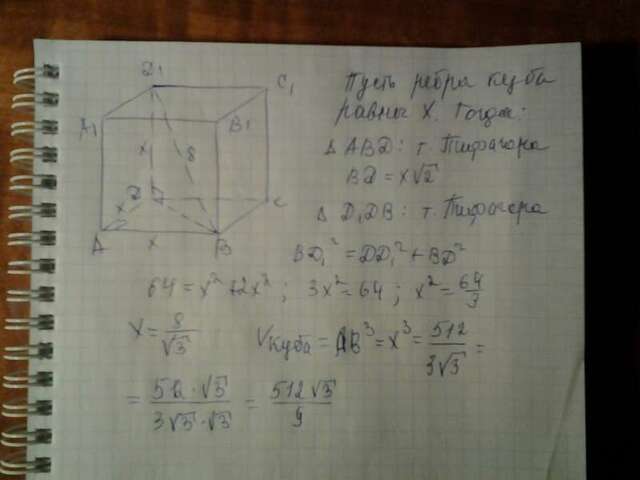 D₁
C₁
A₁
B₁
x
8
D
C
x
A
x
B
Пусть ребра куба
равны X. Тогда:
Δ ABD: т. Пифагора
BD = x√2
Δ D₁DB: т. Пифагора
BD₁² = DD₁² + BD²
64 = x² + 2x² ; 3x² = 64 ; x² = 64/3
x = 8/√3 Vкуба = AB³ = x³ = 512/3√3 =
= 512·√3/3√3·√3 = 512√3/9